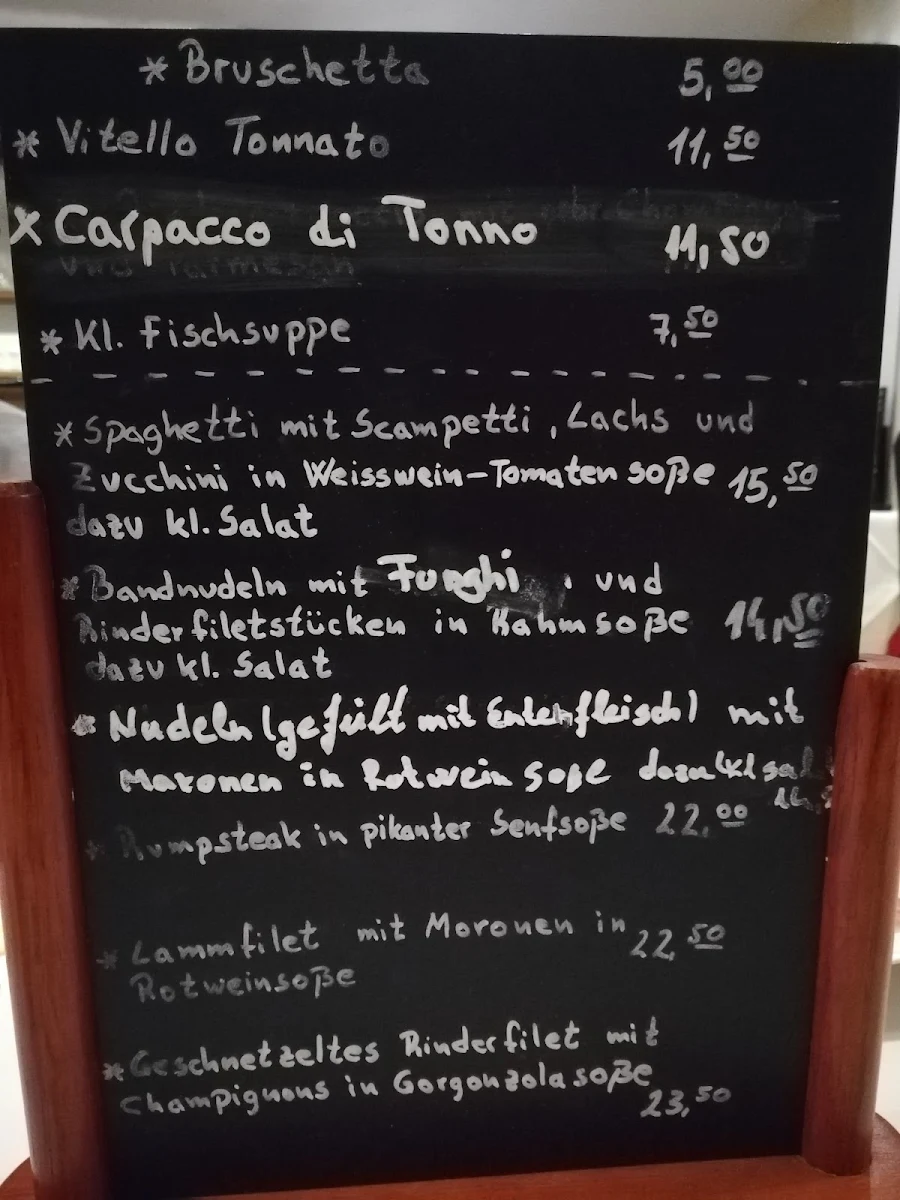 * Bruschetta 5,00
* Vitello Tonnato 11,50
* Carpacco di Tonno 11,50
und Parmesan
* Kl. Fischsuppe 7,50
* Spaghetti mit Scampetti, Lachs und
Zucchini in Weisswein-Tomatensoße 15,50
dazu kl. Salat
* Bandnudeln mit Funghi, und
Rinderfiletstücken in Rahmsoße 14,50
dazu kl. Salat
* Nudeln (gefüllt mit Entenfleisch) mit
Maronen in Rotwein soße dazu kl sal
* Rumpsteak in pikanter Senfsoße 22,00
* Lammfilet mit Moronen in 22,50
Rotweinsoße
* Geschnetzeltes Rinderfilet mit
Champignons in Gorgonzolasoße
23,50